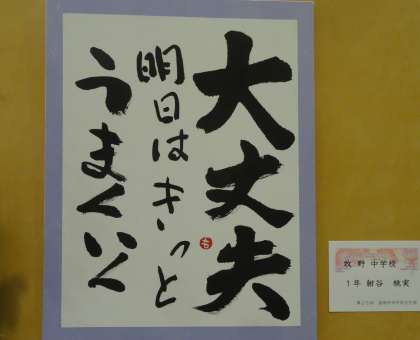 大丈夫
明日はきっと
うまくいく
牧野中学校
1年 射谷 桃実